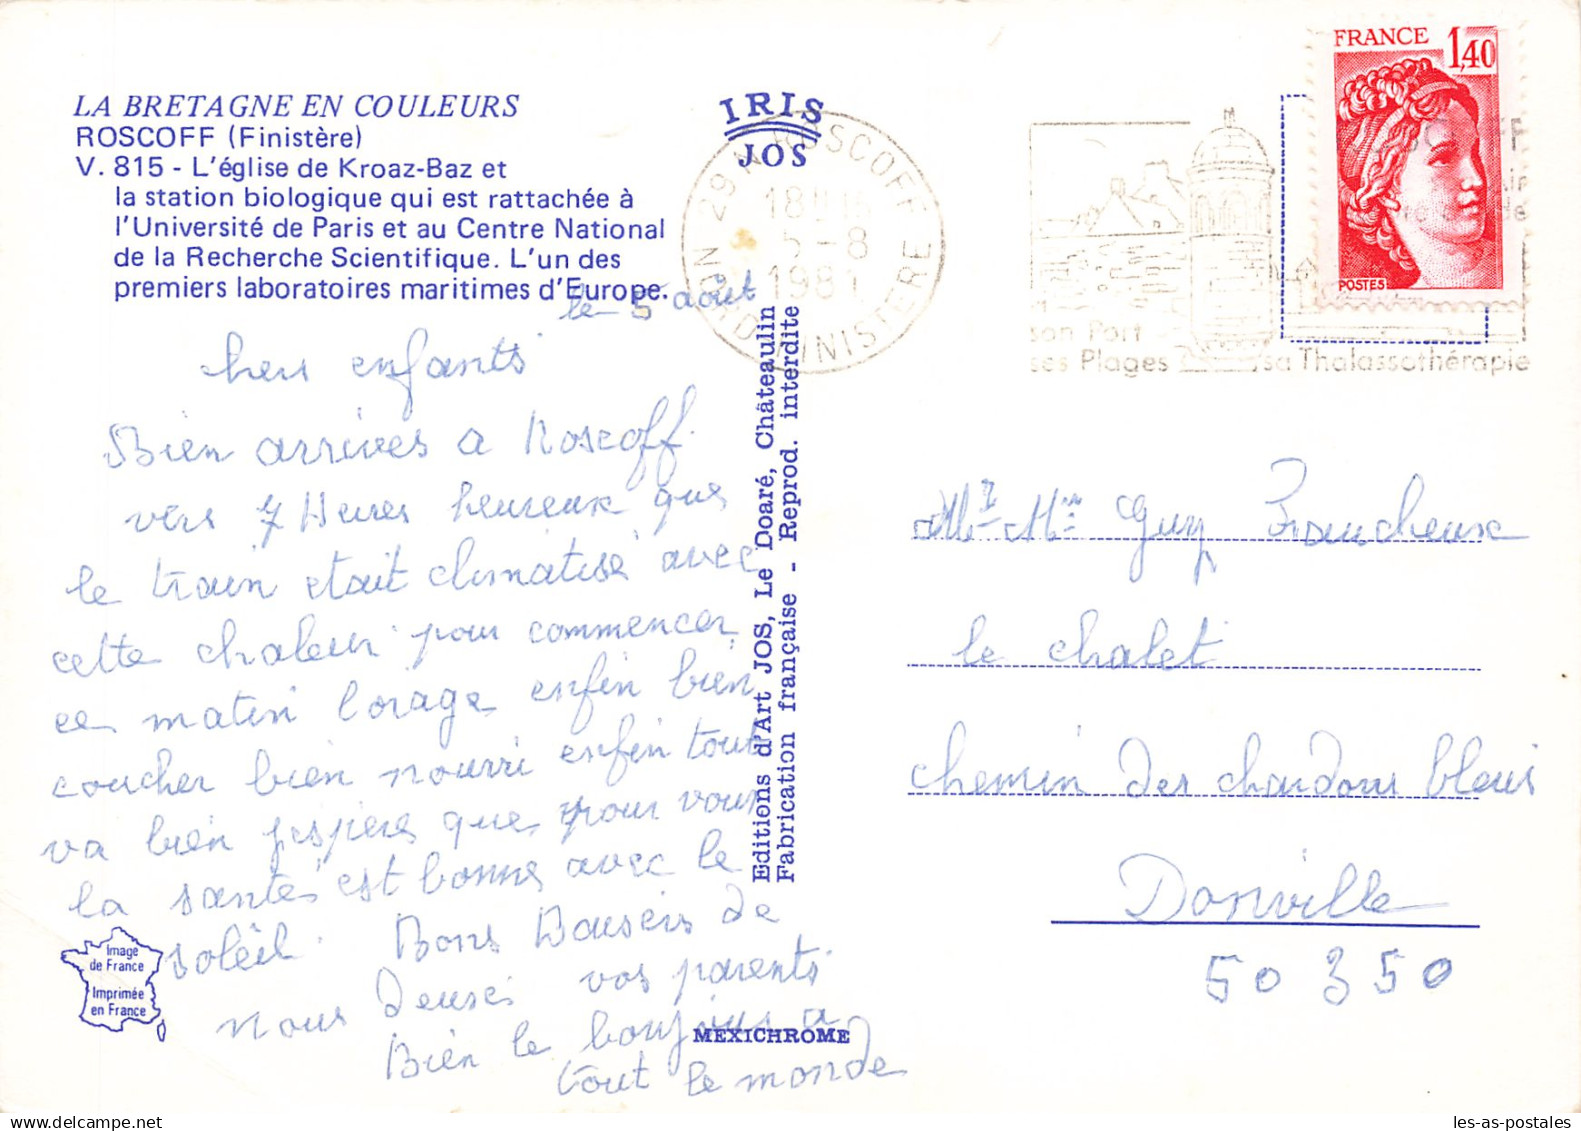 LA BRETAGNE EN COULEURS
ROSCOFF (Finistère)
V. 815 - L'église de Kroaz-Baz et
la station biologique qui est rattachée à
l'Université de Paris et au Centre National
de la Recherche Scientifique. L'un des
premiers laboratoires maritimes d'Europe.
le 5 août
chers enfants
Bien arrivés a Roscoff
vers 7 Heures heureux que
le train etait climatisé avec
cette chaleur pour commencer
ce matin l'orage enfin bien
coucher bien nourri enfin tout
va bien j'espère que pour vous
la santé est bonne avec le
soleil. Bons Baisers de
nous Deux vos parents
Bien le bonjour a
tout le monde
Image
de France
Imprimée
en France
IRIS
JOS
Editions d'Art JOS, Le Doaré, Châteaulin
Fabrication française - Reprod. interdite
MEXICHROME
29 ROSCOFF
18H
5-8
1981
NORD FINISTERE
son Port
ses Plages sa Thalassothérapie
FRANCE
1,40
POSTES
Mr Mme Guy
le chalet
chemin des chardons bleus
Donville
50 350
les-as-postales